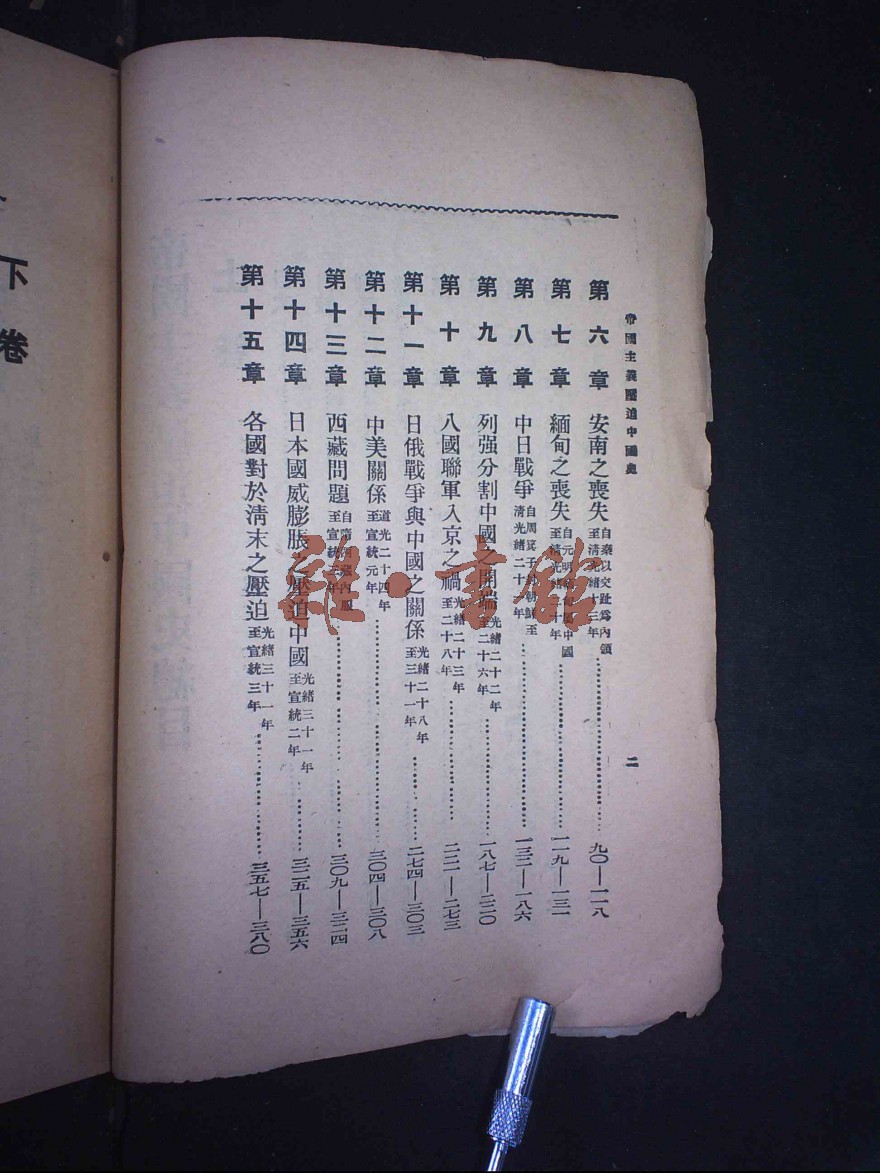 帝國主義壓迫中國史
二
第六章 安南之喪失 自秦以交趾爲內領至清光緒十三年 九〇—一一八
第七章 緬甸之喪失 自元明 中國至清光緒 十年 一一九—一三一
第八章 中日戰爭 自周 子 朝鮮至清光緒二十 年 一三二—一八六
第九章 列强分割中國之開端 光緒二十二年至二十六年 一八七—二二〇
第十章 八國聯軍入京之禍 光緒二十三年至二十八年 二二一—二七三
第十一章 日俄戰爭與中國之關係 光緒二十八年至三十一年 二七四—三〇三
第十二章 中美關係 道光二十四年至宣統元年 三〇四—三〇八
第十三章 西藏問題 自 內服至宣統 年 三〇九—三二四
第十四章 日本國威膨脹之壓迫中國 光緒三十一年至宣統二年 三二五—三五六
第十五章 各國對於清末之壓迫 光緒三十一年至宣統三年 三五七—三八〇
下卷
雜·書館